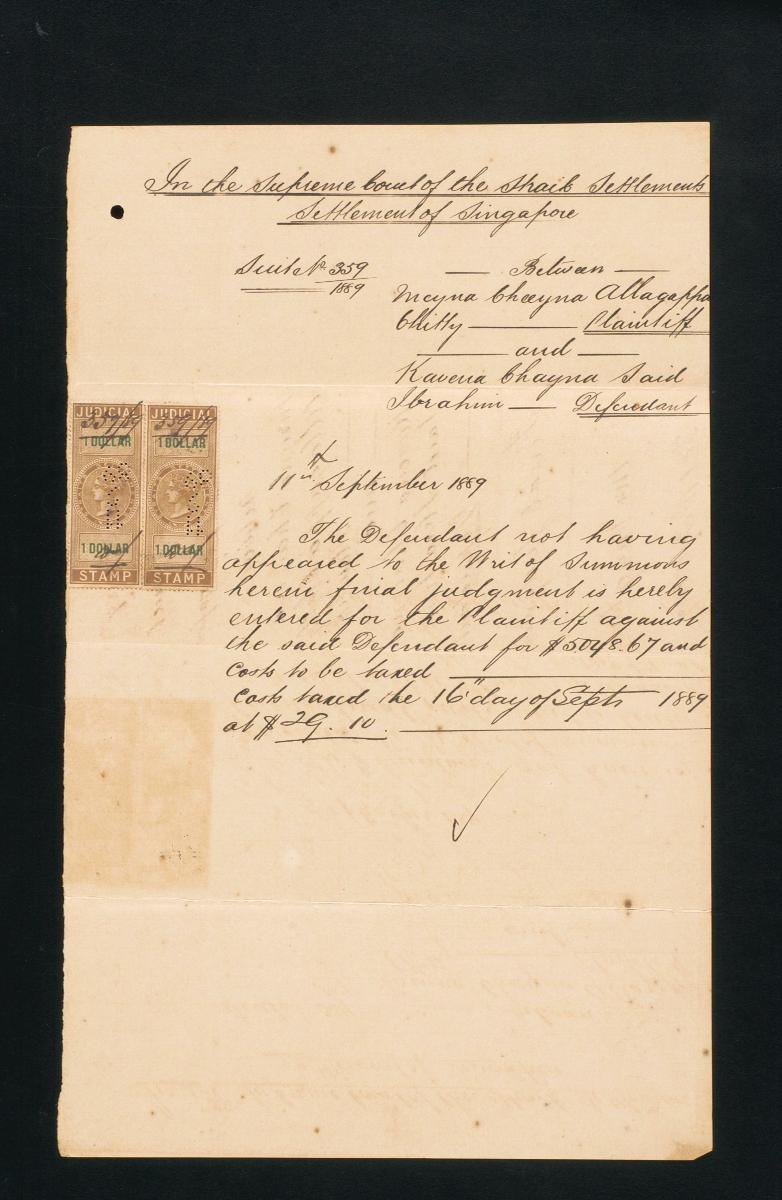 In the Supreme Court of the Straits Settlements
Settlement of Singapore
Suit No. 359
1889
Between
Meyna Cheeyna Allagappa
Chitty Plaintiff
and
Kavena Chayna Said
Ibrahim Defendant
JUDICIAL JUDICIAL
359/89 359/89
1 DOLLAR 1 DOLLAR
1 DOLLAR 1 DOLLAR
STAMP STAMP
11th September 1889
The Defendant not having
appeared to the Writ of Summons
herein final judgment is hereby
entered for the Plaintiff against
the said Defendant for $5048.67 and
Costs to be taxed
Costs taxed the 16" day of Sept 1889
at $29.10.